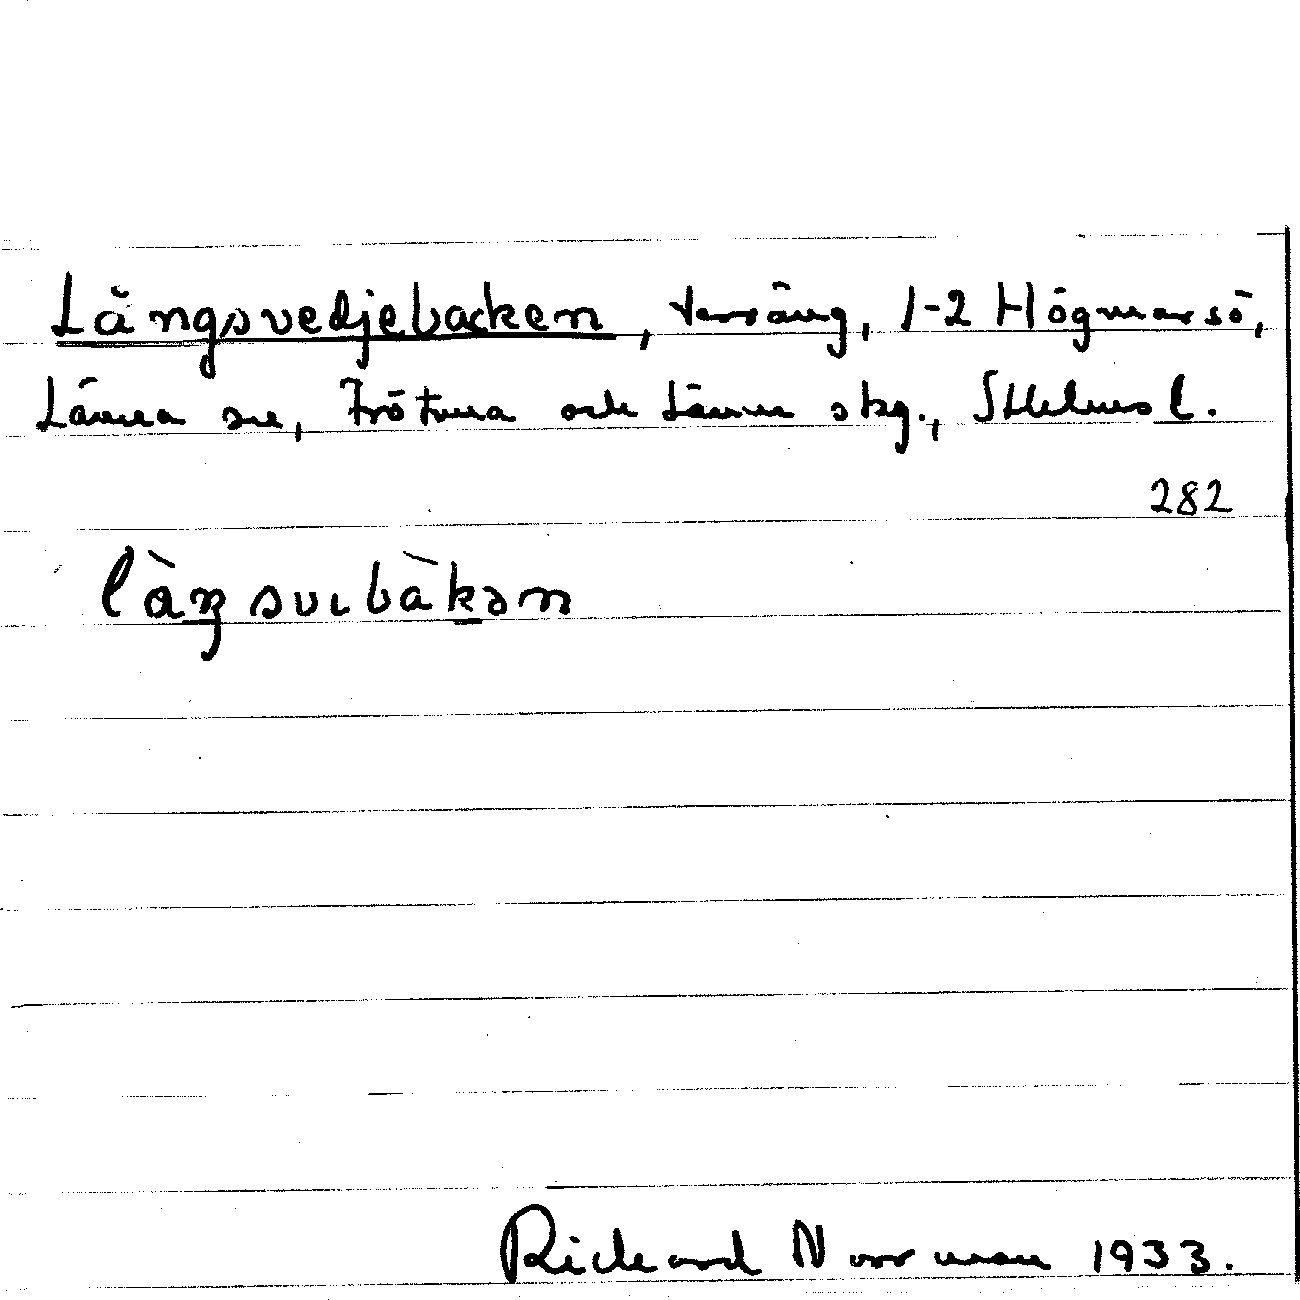 Långsvedjebacken, terräng, 1-2 Högmarsö,
Länna sn, Frötuna och Länna skg., Sthlms l.
282
Richard Norrman 1933.